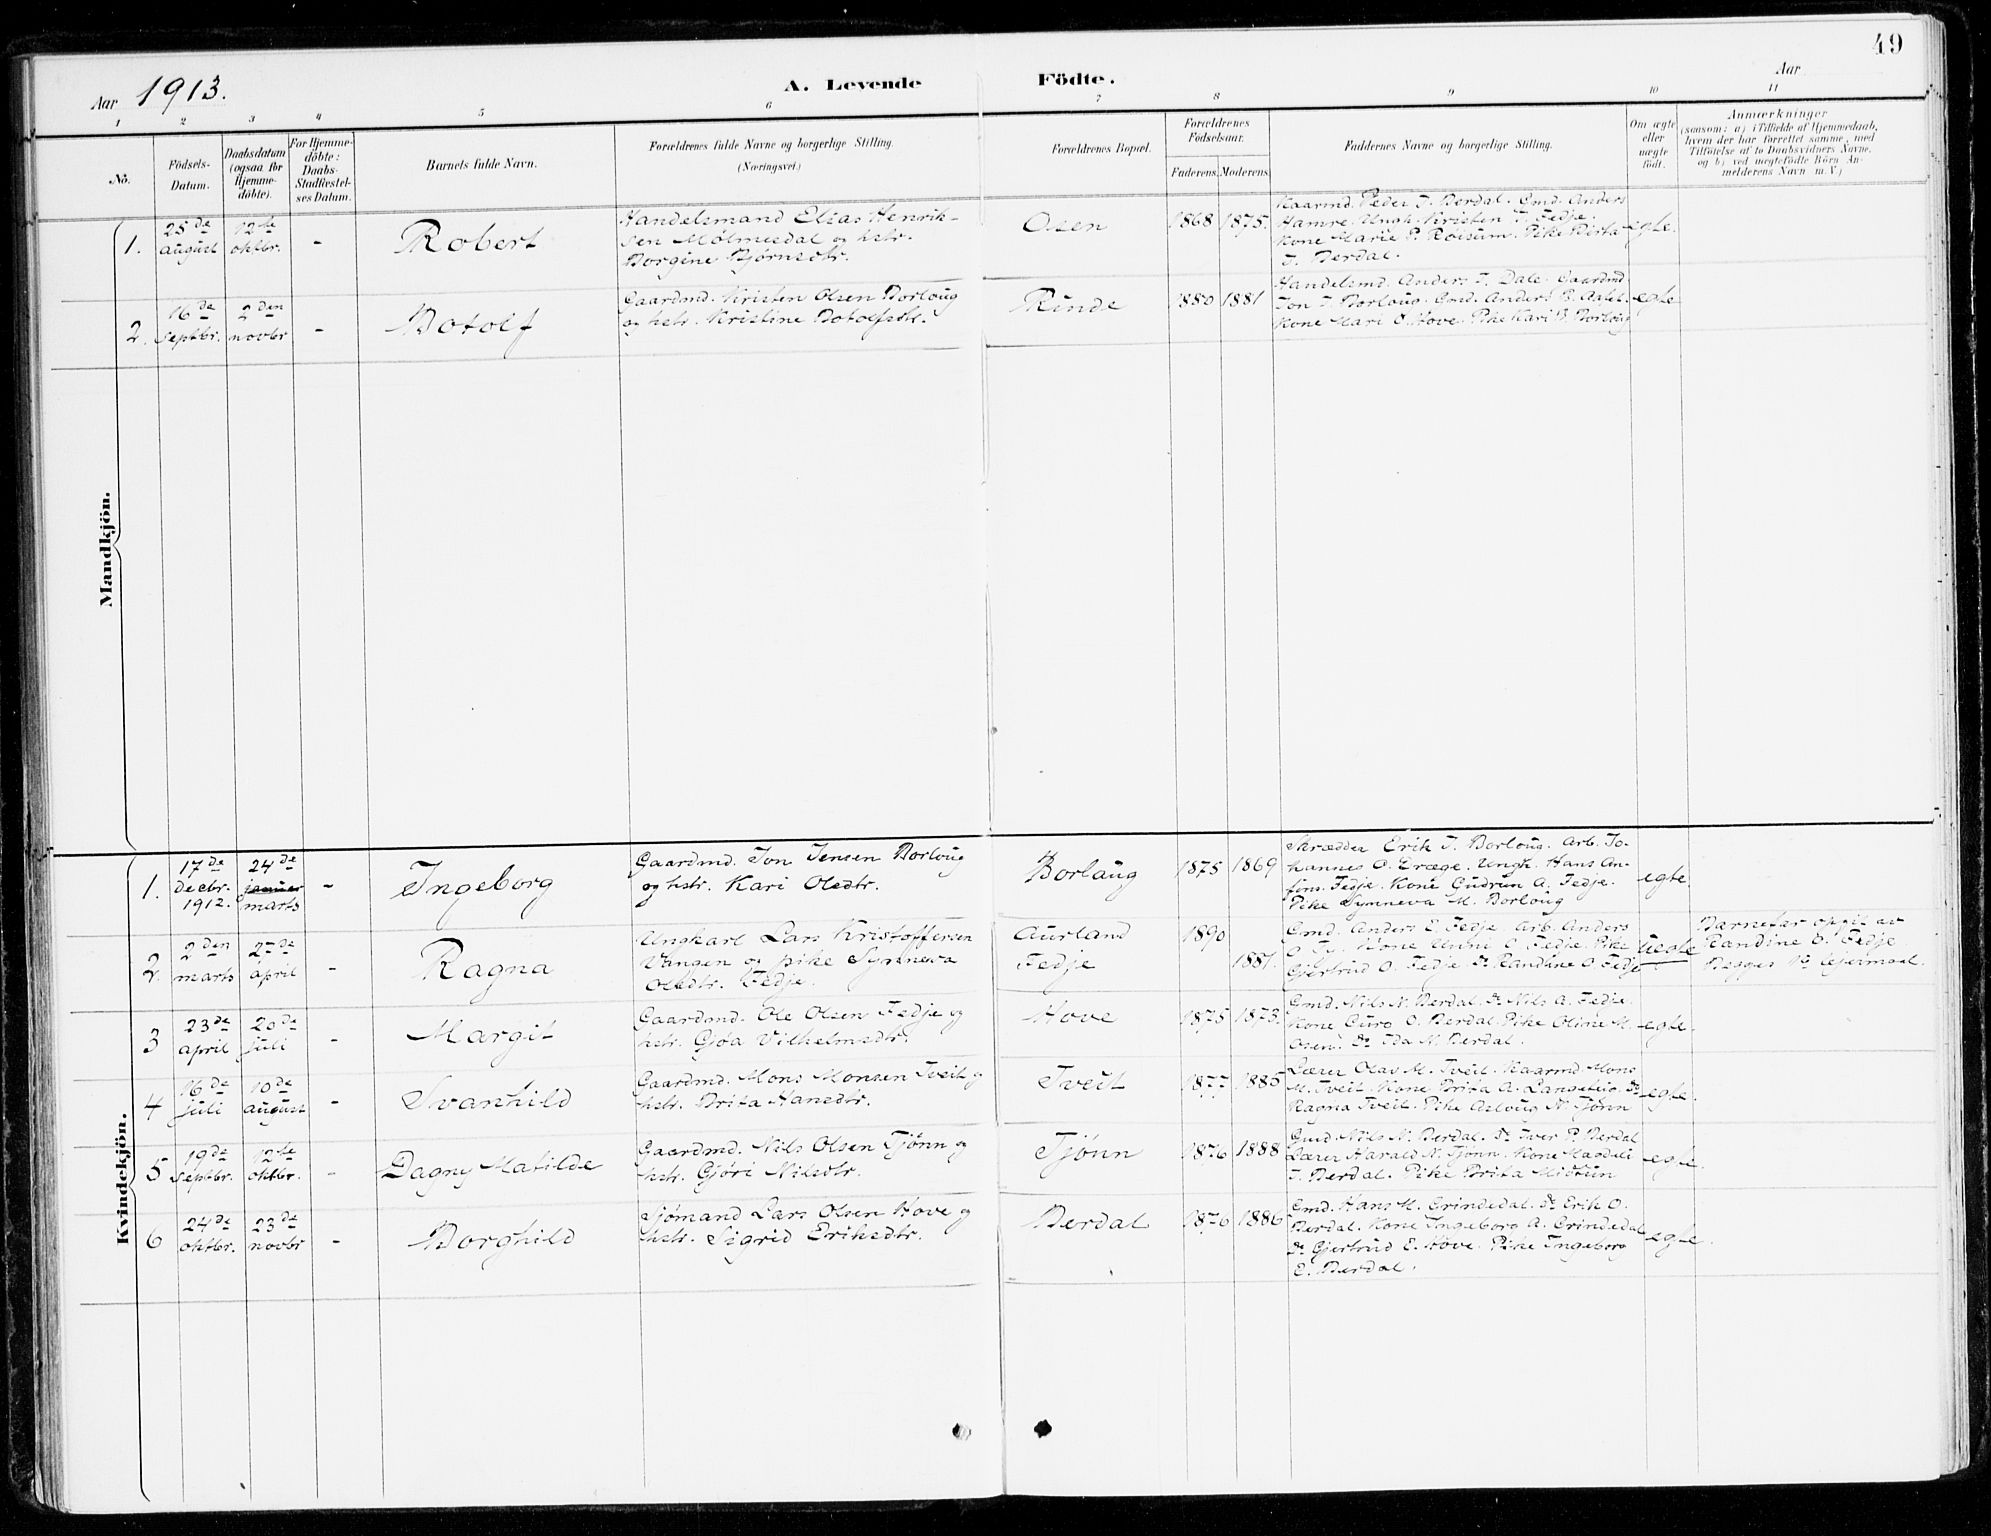 49
Aar 1913.
A. Levende Födte.
Aar
1 2 3 4 5 6 7 8 9 10 11
No.
Födsels-
Datum.
Daabsdatum
(ogsaa for
Hjemme-
döbte).
For Hjemme-
döbte:
Daabs-
Stadfæstel-
ses Datum.
Barnets fulde Navn.
Forældrenes fulde Navne og borgerlige Stilling.
(Næringsvei.)
Forældrenes Bopæl.
Forældrenes
Födselsaar.
Faderens. Moderens.
Faddernes Navne og borgerlige Stilling.
Om ægte
eller
uægte
födt.
Anmærkninger
(saasom: a) i Tilfælde af Hjemmedaab,
hvem der har forrettet samme, med
Tilföielse af to Daabsvidners Navne,
og b) ved uægtefödte Börn An-
melderens Navn m. V.)
Mandkjön.
1.
25de
august
12te
oktbr.
-
Robert
Handelsmand Elias Henrik-
sen Mølmesdal og hstr.
Borgine Bjørnsdtr.
Osen
1868 1875.
Kaarmd. Peder J. Berdal. Gmd. Anders
Hamre. Ungk. Kristen J. Fedje.
Kone Marie P. Røisum. Pike Berta
J. Berdal.
egte.
2.
16de
septbr.
2den
novbr
-
Botolf
Gaardmd. Kristen Olsen Borlaug
og hstr. Kristine Botolfsdtr.
Rinde
1880 1881
Handelsmd. Anders J. Dale. Gaardmd.
Jon J. Borlaug. Gmd. Anders B.
Kone Mari O. Hove. Pike Kari B. Borlaug
egte
Kvindekjön.
1.
17de
decbr.
1912.
24de
januar
marts
-
Ingeborg
Gaardmd. Jon Jensen Borlaug
og hstr. Kari Olsdtr.
Borlaug
1875 1869
Skrædder Erik J. Borlaug. Arb. Jo-
hannes O. Dræge. Ungk. Hans An-
fins. Fedje. Kone Gudrun A. Fedje.
Pike Synneva M. Borlaug
egte.
2.
2den
marts
27de
april
-
Ragna
Ungkarl Lars Kristoffersen
Vangen og pike Synneva
Olsdtr. Fedje.
Aurland
Fedje
1890
1881.
Gmd. Anders E. Fedje. Arb. Anders
O. Kone Unni O. Fedje. Pike
Gjertrud O. Fedje. Do Randine O. Fedje
Uegte.
Barnefar opgit av
Randine O. Fedje
Begges 1ste lejermaal.
3
23de
april
20de
juli
-
Margit
Gaardmd. Ole Olsen Fedje og
hstr. Gjøa Vilhelmsdtr.
Hove
1875 1873.
Gmd. Nils N. Berdal. Do Nils A. Fedje.
Kone Guro O. Berdal. Pike Oline M.
Osen. Do Ida N. Berdal.
egte.
4
16de
juli
10de
august
-
Svanhild
Gaardmd. Mons Monsen Tveit og
hstr. Brita Hansdtr.
Tveit
1877 1885
Lærer Olav M. Tveit. Kaarmd. Mons
M. Tveit. Kone Brita A. Langeteig. Do
Ragna Tveit. Pike Aslaug N. Tjønn
egte.
5
19de
septbr.
12te
oktbr.
-
Dagny Matilde
Gaardmd. Nils Olsen Tjønn og
hstr. Gjøri Nilsdtr.
Tjønn
1876 1888
Gmd. Nils N. Berdal. Do Iver P. Berdal
Lærer Harald N. Tjønn. Kone Magdeli
J. Berdal. Pike Brita Midtun
egte.
6
24de
oktbr.
23de
novbr
-
Borghild
Sjømand Lars Olsen Hove og
hstr. Sigrid Eriksdtr.
Berdal
1876 1886
Gmd. Hans M. Grindedal. Do Erik O.
Berdal. Kone Ingeborg A. Grindedal
Do Gjertrud E. Hove. Pike Ingeborg
E. Berdal.
egte.